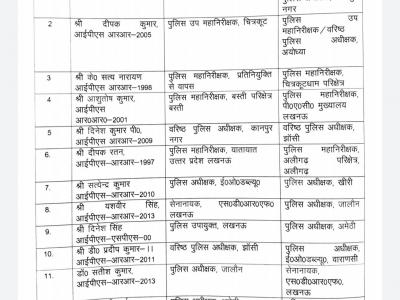 नगर
2 श्री दीपक कुमार, पुलिस उप महानिरीक्षक, चित्रकूट पुलिस उप
आईपीएस आरआर–2005 महानिरीक्षक/वरिष्ठ
पुलिस अधीक्षक,
अयोध्या
3 श्री के0 सत्य नारायण पुलिस महानिरीक्षक, प्रतिनियुक्ति पुलिस महानिरीक्षक,
आईपीएस आरआर–1998 से वापस चित्रकूटधाम परिक्षेत्र
4 श्री आशुतोष कुमार, पुलिस महानिरीक्षक, बस्ती परिक्षेत्र पुलिस महानिरीक्षक,
आईपीएस बस्ती पी0ए0सी0 मुख्यालय
आर0आर0–2001 लखनऊ
5 श्री दिनेश कुमार पी0, वरिष्ठ पुलिस अधीक्षक, कानपुर वरिष्ठ पुलिस अधीक्षक,
आईपीएस आरआर–2009 नगर झॉसी
6. श्री दीपक रतन, पुलिस महानिरीक्षक, यातायात पुलिस महानिरीक्षक,
आईपीएस–आरआर–1997 उत्तर प्रदेश लखनऊ अलीगढ़ परिक्षेत्र,
अलीगढ़
7. श्री सत्येन्द्र कुमार पुलिस अधीक्षक, ई0ओ0डब्ल्यू0 पुलिस अधीक्षक, खीरी
आईपीएस–आरआर–2010
8. श्री यशवीर सिंह, सेनानायक, एस0डी0आर0एफ0 पुलिस अधीक्षक, जालौन
आईपीएस–आरआर–2013 लखनऊ
9. श्री दिनेश सिंह पुलिस उपायुक्त, लखनऊ पुलिस अधीक्षक, अमेठी
आईपीएस–एसपीएस–00
10. श्री डी0 प्रदीप कुमार–।। वरिष्ठ पुलिस अधीक्षक, झॉसी पुलिस अधीक्षक,
आईपीएस–आरआर–2011 ई0ओ0डब्ल्यू0, वाराणसी
11. डॉ0 सतीश कुमार, पुलिस अधीक्षक, जालौन सेनानायक,
आईपीएस–आरआर–2013 एस0डी0आर0एफ0
लखनऊ